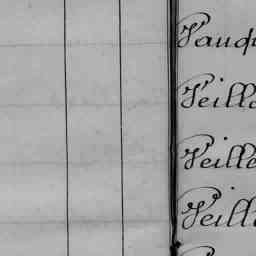 Vauqu
Veill
Veille
Veill